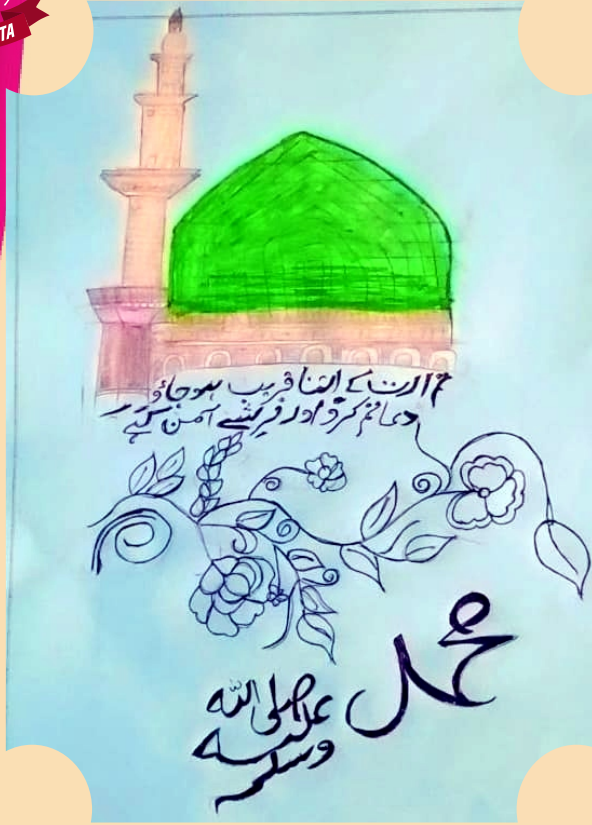 TA
تم کے اتنا قریب ہوجاؤ
دعا تم کرو اور فرشتے آمین کہے
محمد
صلی اللہ
علیہ
وسلم